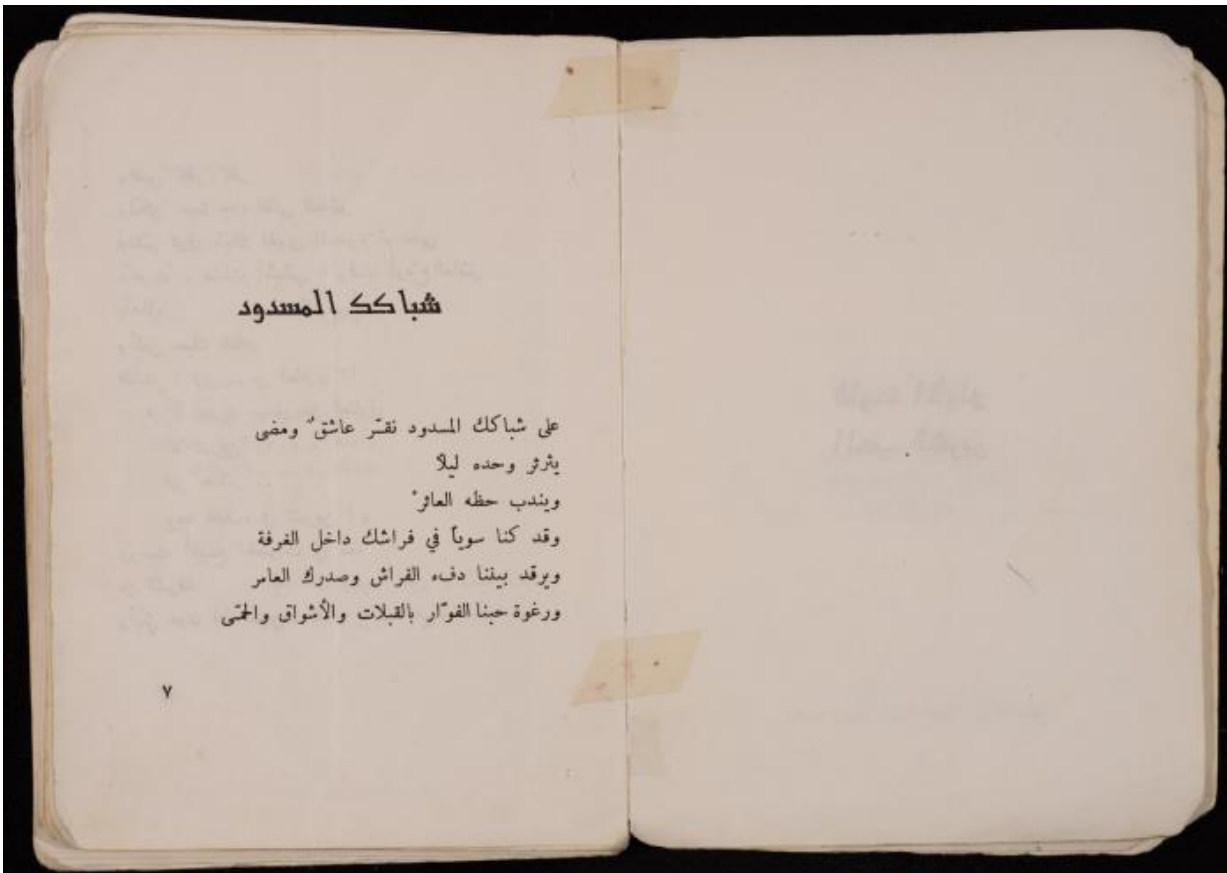 شباكك المسدود
على شباكك المسدود نقتّر عاشقٌ ومضى
يثرثر وحده ليلًا
ويندب حظه العاثرْ
وقد كنا سوياً في فراشك داخل الغرفة
ويرقد بيننا دفء الفراش وصدرك العامر
ورغوة حبنا الفوّار بالقبلات والأشواق والحمّى
٧